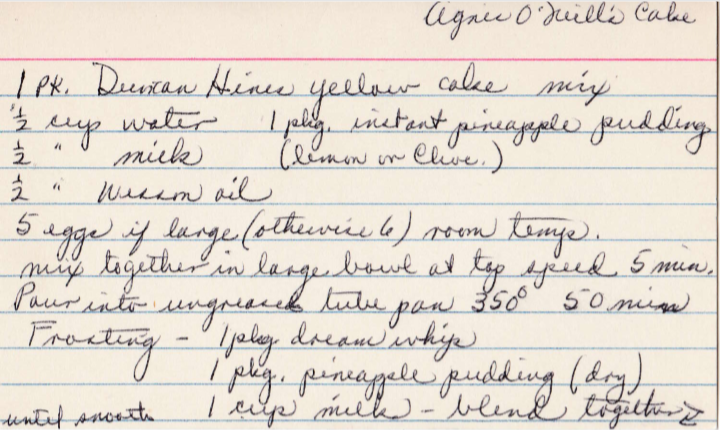 Agnes O'Neill's Cake
1 pk. Duncan Hines yellow cake mix
½ cup water 1 pkg. instant pineapple pudding
½ " milk (lemon or Choc.)
½ " Wesson oil
5 eggs if large (otherwise 6) room temp.
mix together in large bowl at top speed 5 min.
Pour into ungreased tube pan 350° 50 min
Frosting - 1 pkg dream whip
1 pkg. pineapple pudding (dry)
until smooth 1 cup milk - blend together